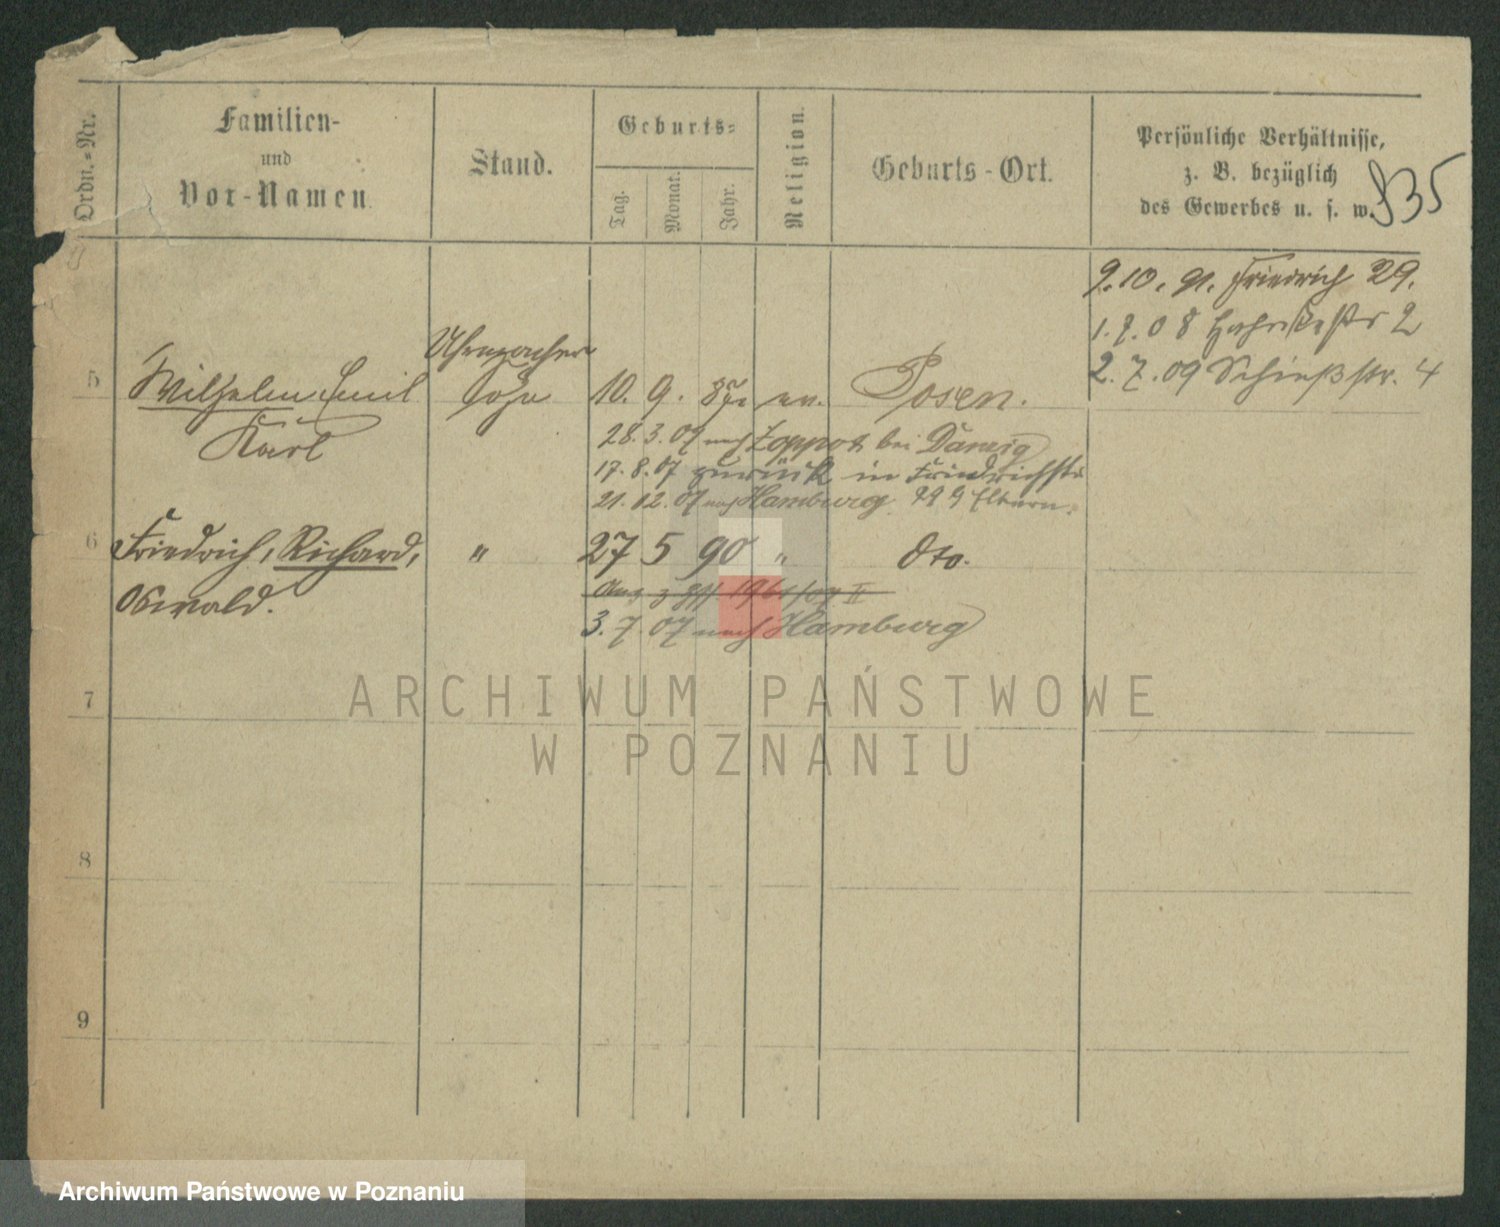 Ordn.-Nr.
Familien-
und
Vor-Namen.
Stand.
Geburts-
Tag.
Monat.
Jahr.
Religion.
Geburts-Ort.
Persönliche Verhältnisse,
z. B. bezüglich
des Gewerbes u. s. w.
835
9.10.91. Friedrich 29.
1.7.08 2
2.7.09 Schießstr. 4
5
Wilhelm Emil
Karl
Uhrmacher
Sohn
10. 9. ev. Posen.
28.3.07 nach Zoppot bei Danzig
17.8.07 zurück in Friedrichstr
21.12.07 nach Hamburg. Eltern.
6
Friedrich, Richard,
Oswald.
"
27 5 90 " dto.
3.7.07 nach Hamburg
7
8
9
ARCHIWUM PAŃSTWOWE
W POZNANIU
Archiwum Państwowe w Poznaniu